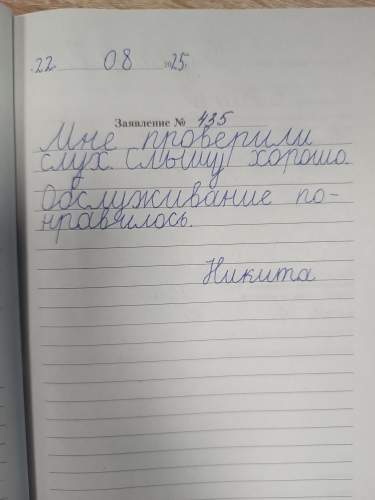 22. 08 2025.
Заявление № 435
Мне проверили
слух. Слышу хорошо.
Обслуживание по-
нравилось.
Никита